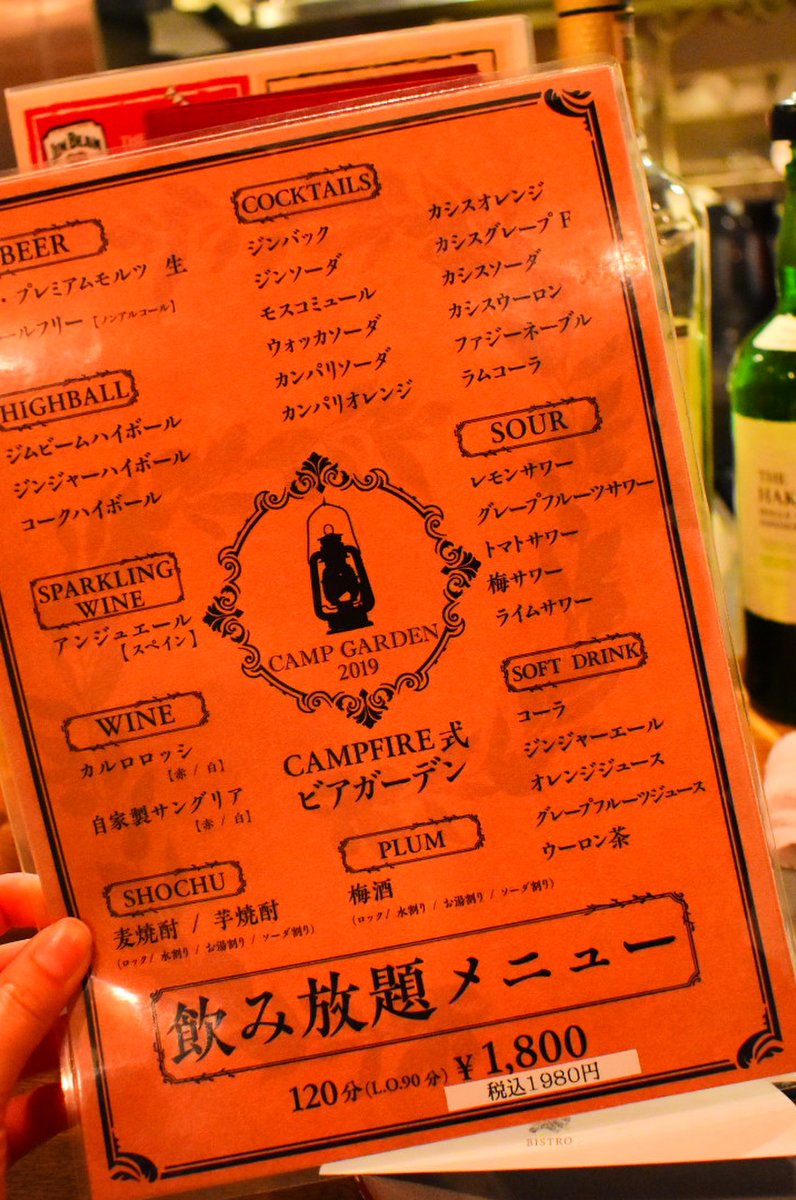 JIM BEAM
BEER
・プレミアムモルツ 生
ールフリー【ノンアルコール】
HIGHBALL
ジムビームハイボール
ジンジャーハイボール
コークハイボール
SPARKLING
WINE
アンジュエール
【スペイン】
WINE
カルロロッシ
【赤 / 白】
自家製サングリア
【赤 / 白】
SHOCHU
麦焼酎 / 芋焼酎
(ロック/ 水割り / お湯割り / ソーダ割り)
COCKTAILS
ジンバック
ジンソーダ
モスコミュール
ウォッカソーダ
カンパリソーダ
カンパリオレンジ
カシスオレンジ
カシスグレープ F
カシスソーダ
カシスウーロン
ファジーネーブル
ラムコーラ
SOUR
レモンサワー
グレープフルーツサワー
トマトサワー
梅サワー
ライムサワー
CAMP GARDEN
2019
CAMPFIRE 式
ビアガーデン
SOFT DRINK
コーラ
ジンジャーエール
オレンジジュース
グレープフルーツジュース
ウーロン茶
PLUM
梅酒
(ロック/ 水割り / お湯割り / ソーダ割り)
飲み放題メニュー
120分(L.O.90 分) ￥1,800
税込1980円
BISTRO
THE
HAK